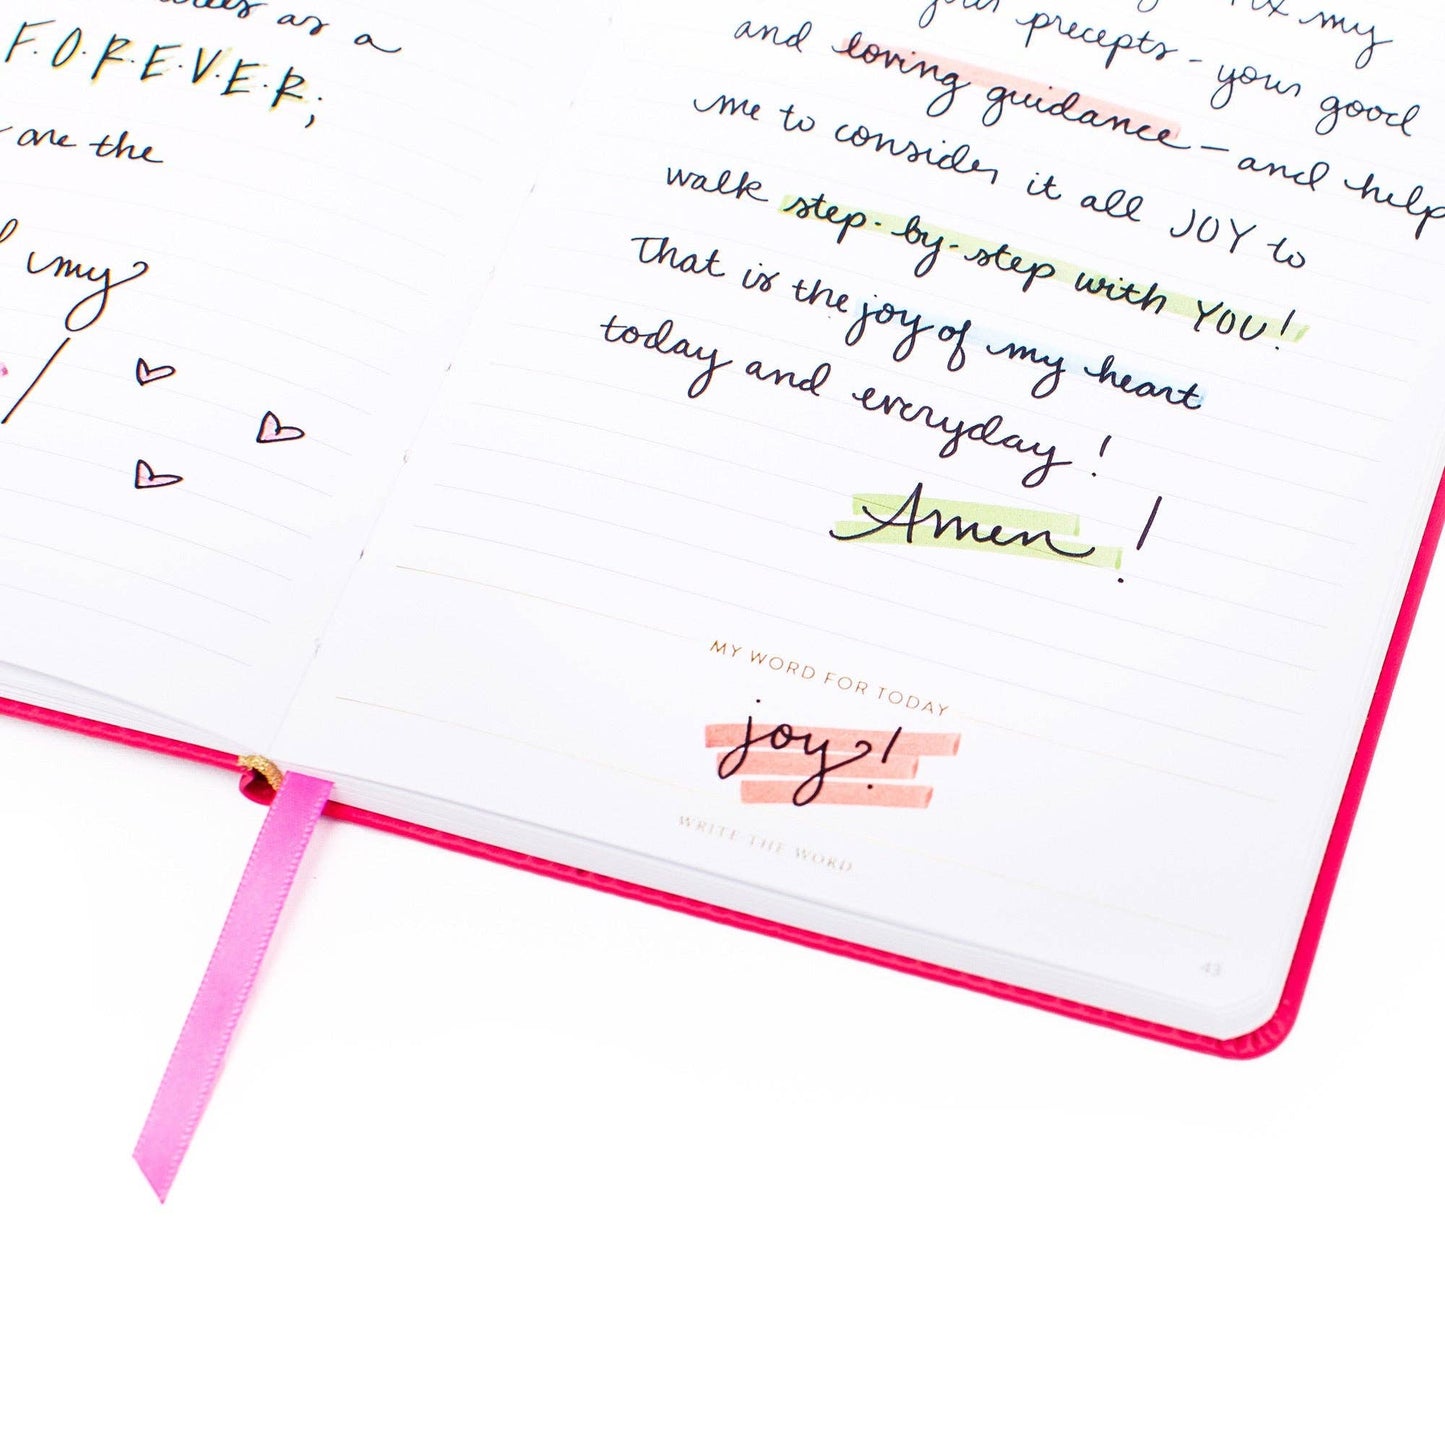 as a
F.O.R.E.V.E.R;
are the
my
fix my
your precepts - your good
and loving guidance - and help
me to consider it all JOY to
walk step-by-step with YOU!
That is the joy of my heart
today and everyday!
Amen!
MY WORD FOR TODAY
joy!
WRITE THE WORD
43